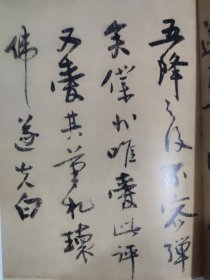 五降之後不容彈
矣僕小唯愛此評
又愛其筆札瓌
偉遂先白